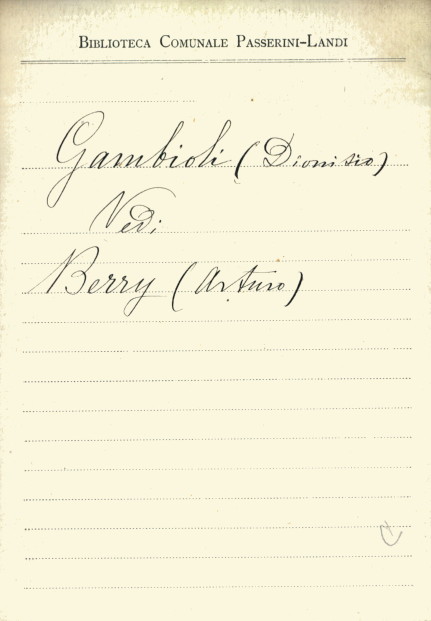 BIBLIOTECA COMUNALE PASSERINI-LANDI
Gambioli (Dionisio)
Vedi
Berry (Arturo)